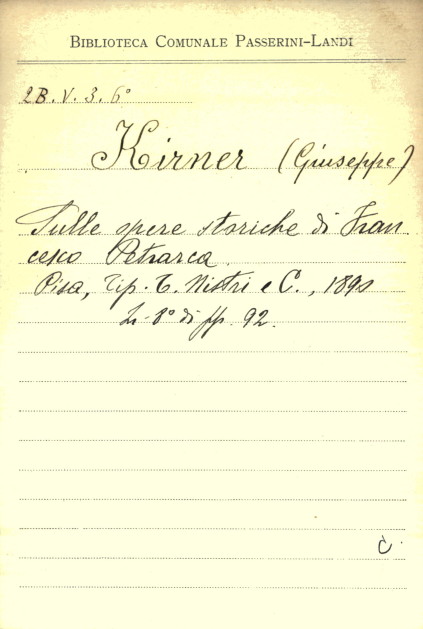 BIBLIOTECA COMUNALE PASSERINI-LANDI
2B.V.3.6°
Kirner (Giuseppe)
Sulle opere storiche di Fran
cesco Petrarca.
Pisa, Tip. T. Nistri e C., 1890
In-8° di pp. 92.
C